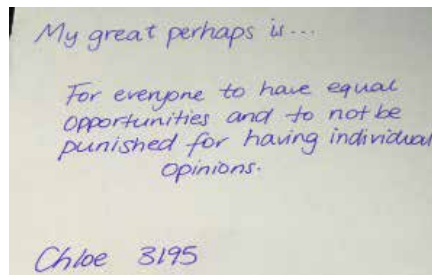 My great perhaps is...
For everyone to have equal
opportunities and to not be
punished for having individual
opinions.
Chloe 3195